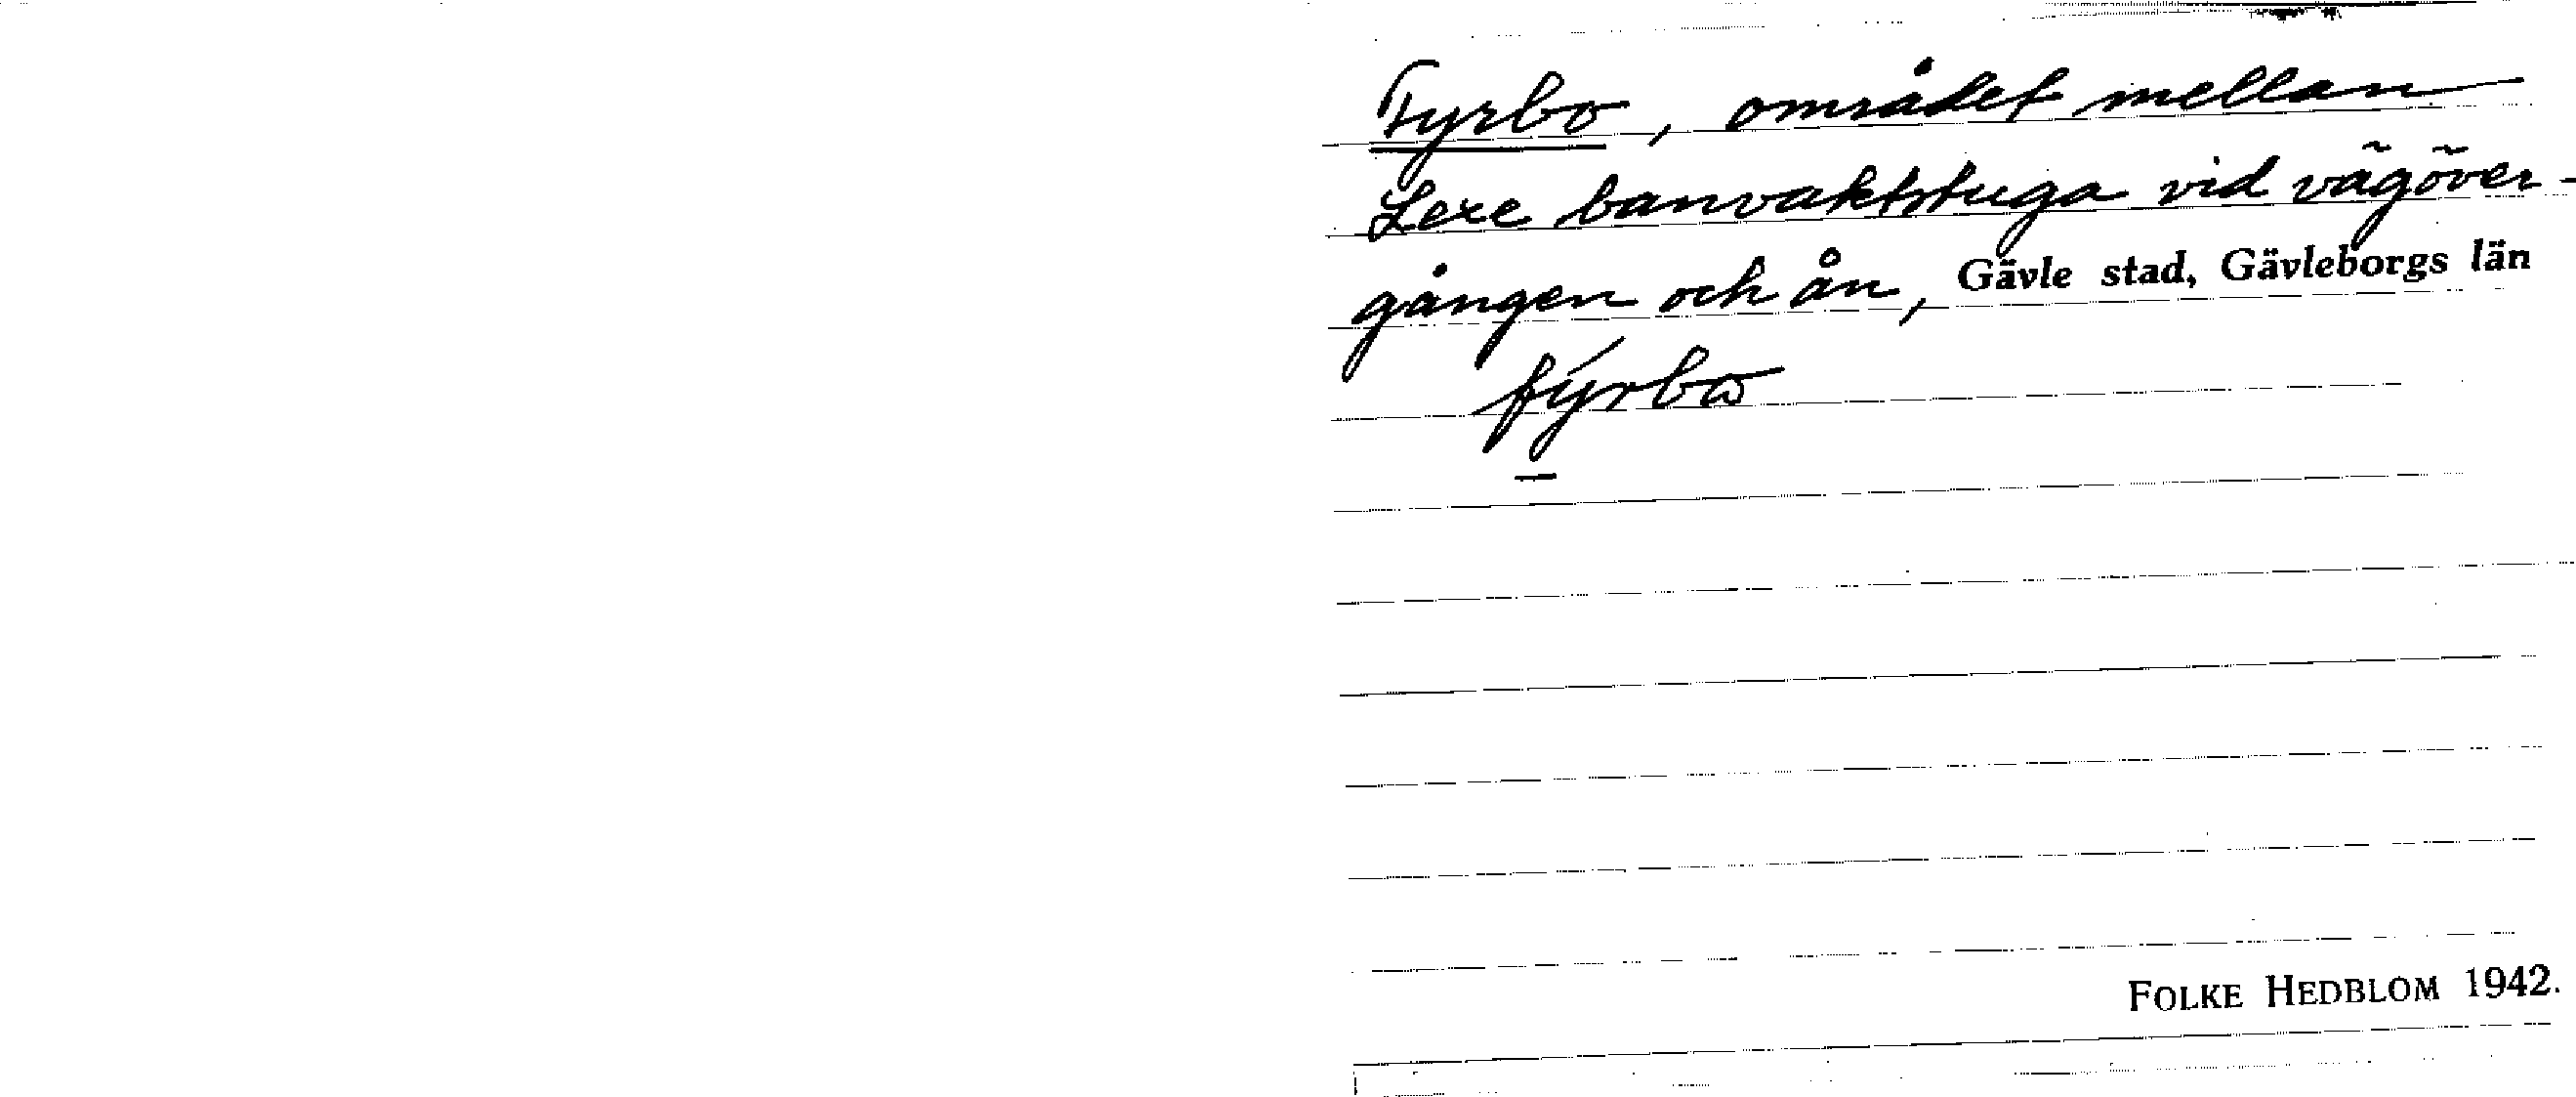 Fyrbo, området mellan
Lexe banvaktstuga vid vägöver-
gången och ån, Gävle stad, Gävleborgs län
fýrbω
FOLKE HEDBLOM 1942.